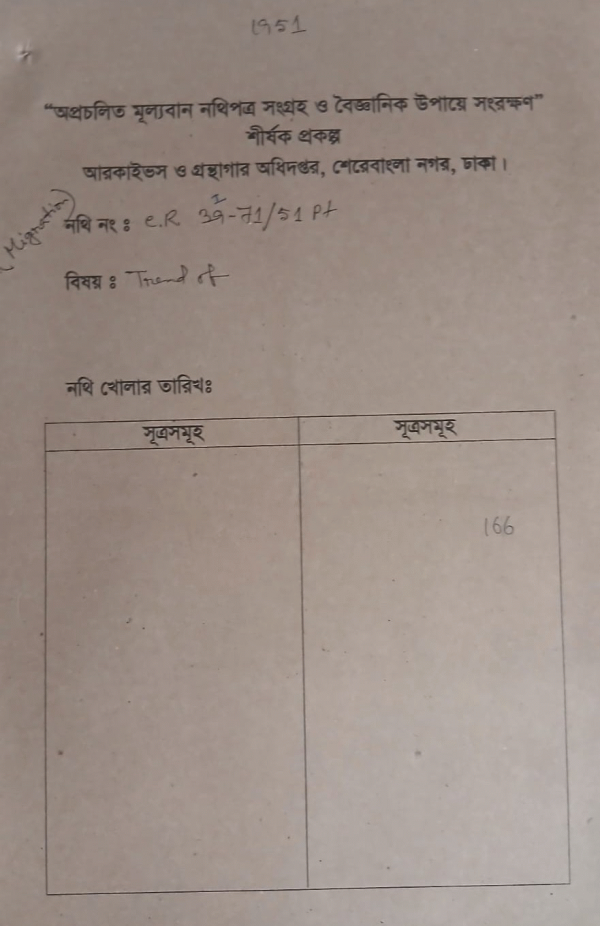 1951
"অপ্রচলিত মূল্যবান নথিপত্র সংগ্রহ ও বৈজ্ঞানিক উপায়ে সংরক্ষণ"
শীর্ষক প্রকল্প
আরকাইভস ও গ্রন্থাগার অধিদপ্তর, শেরেবাংলা নগর, ঢাকা।
(Migration)
নথি নং ঃ C.R 3I-71/51 Pt
বিষয় ঃ Trend of
নথি খোলার তারিখঃ
সূত্রসমূহ সূত্রসমূহ
166